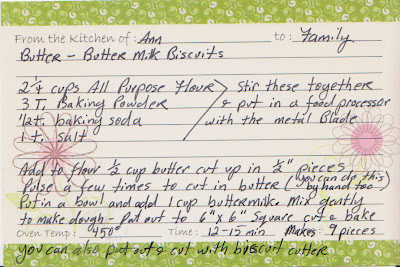 From the Kitchen of: Ann to: Family
Butter - Butter Milk Biscuits
2 1/4 cups All Purpose Flour Stir these together
3 T. Baking Powder & put in a food processor
1/2 t. baking soda with the metal Blade
1 t. salt
Add to flour 1/2 cup butter cut up in 1/2" pieces
Pulse a few times to cut in butter (you can do this by hand too)
Put in a bowl and add 1 cup buttermilk. Mix gently
to make dough - Pat out to 6"x 6" Square cut & bake
Oven Temp: 450° Time: 12-15 min Makes 9 pieces
you can also pat out & cut with biscuit cutter